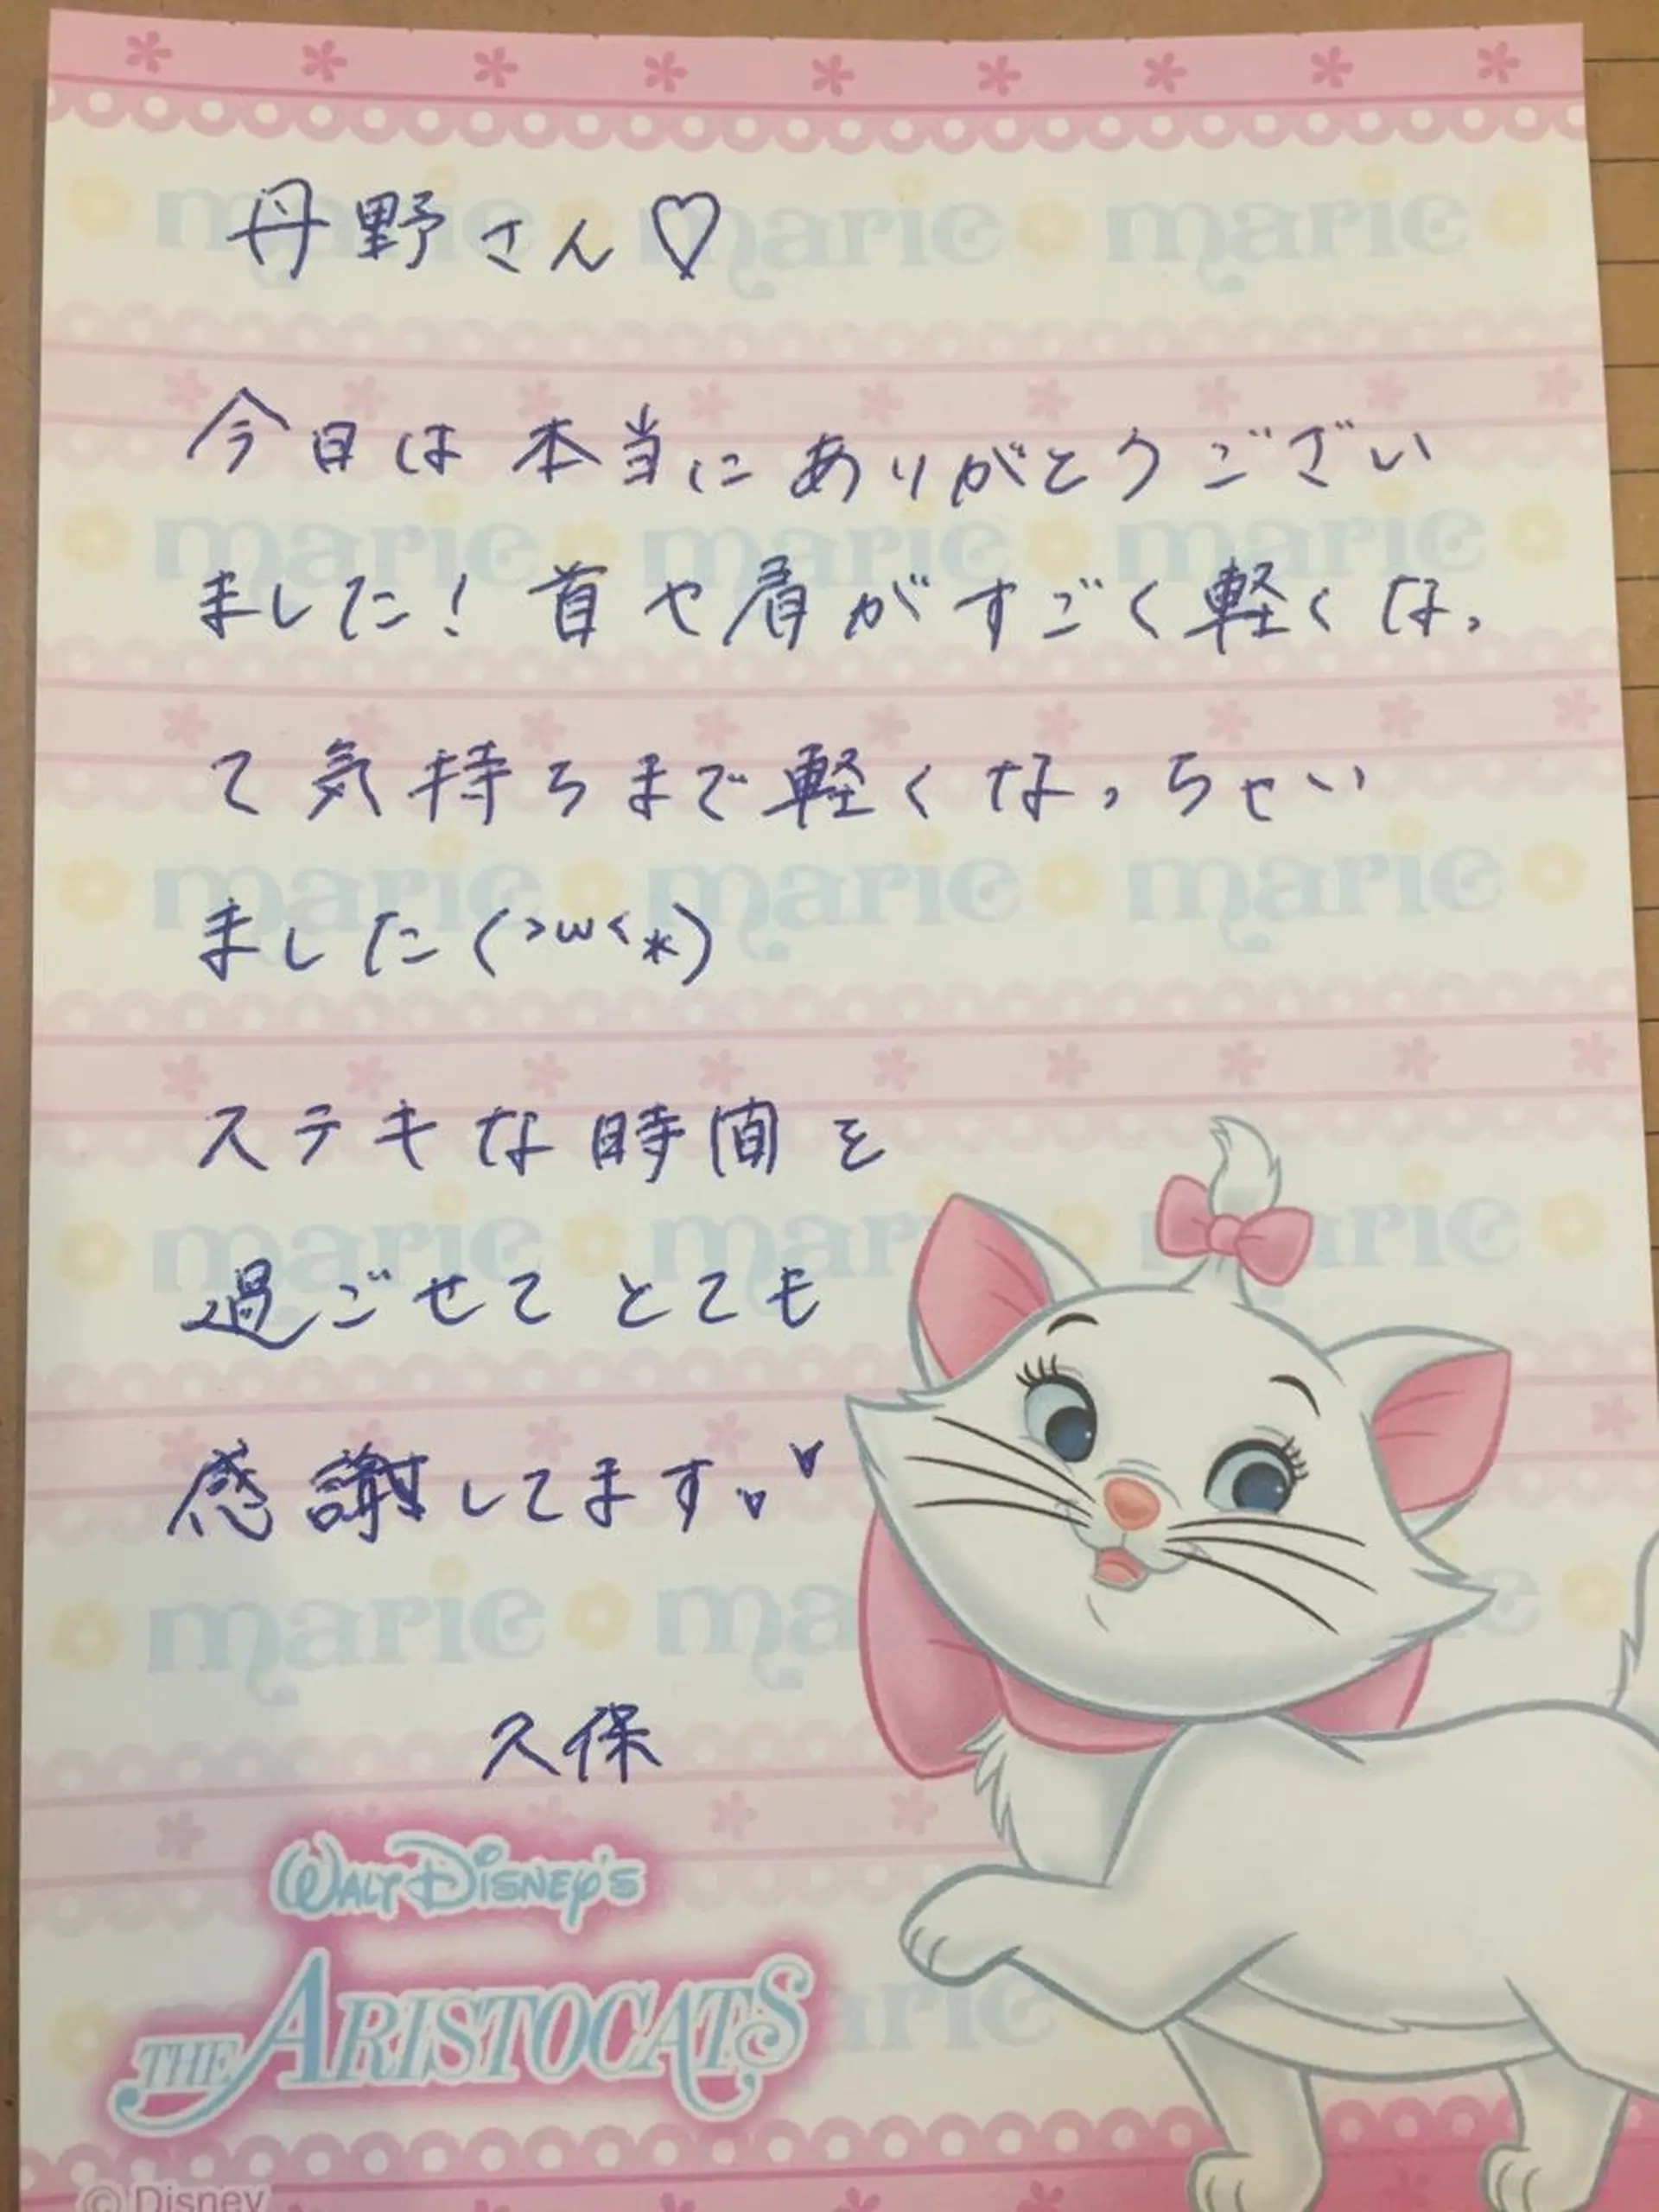 丹野さん♡
今日は本当にありがとうござい
ました！首や肩がすごく軽くなっ
て気持ちまで軽くなっちゃい
ました(>ω<*)
ステキな時間を
過ごせてとても
感謝してます♡♥
久保
marie marie marie
marie marie marie
marie marie marie
marie marie marie
marie
WALT DISNEY'S
THE ARISTOCATS
© Disney